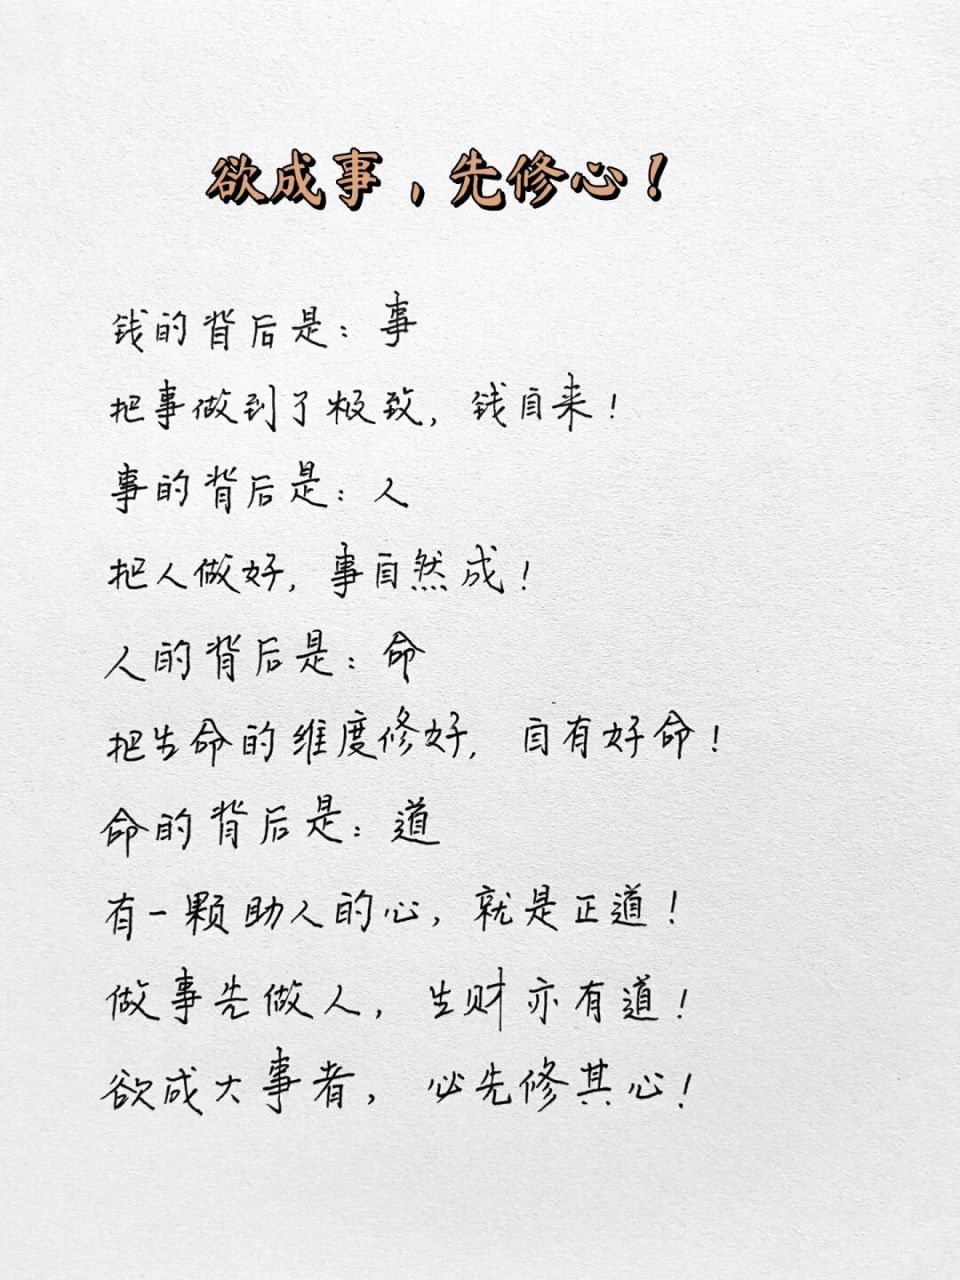 欲成事，先修心！
钱的背后是：事
把事做到了极致，钱自来！
事的背后是：人
把人做好，事自然成！
人的背后是：命
把生命的维度修好，自有好命！
命的背后是：道
有一颗助人的心，就是正道！
做事先做人，生财亦有道！
欲成大事者，必先修其心！